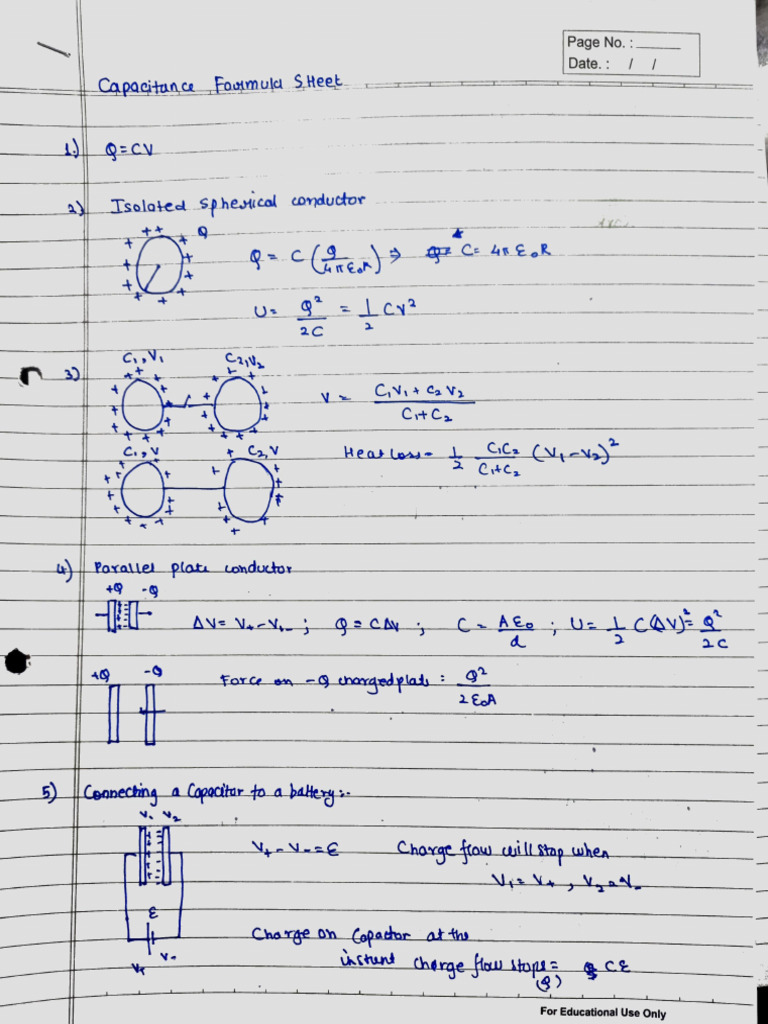 Page No. :
Date. : / /
Capacitance Formula Sheet
1.) Q = CV
2) Isolated spherical conductor
Q
Q = C (Q/4πε₀R) ⇒ C = 4πε₀R
U = Q²/2C = 1/2 CV²
3)
C₁, V₁ C₂, V₂
V = (C₁V₁ + C₂V₂)/(C₁ + C₂)
C₁, V C₂, V
Heat loss = 1/2 C₁C₂/(C₁+C₂) (V₁ - V₂)²
4) Parallel plate conductor
+Q -Q
ΔV = V₊ - V₋ ; Q = CΔV ; C = Aε₀/d ; U = 1/2 C(ΔV)² = Q²/2C
+Q -Q
Force on -Q charged plate : Q²/2ε₀A
5) Connecting a Capacitor to a battery:-
V₁ V₂
V₊ - V₋ = ε Charge flow will stop when
V₁ = V₊ , V₂ = V₋
ε
V₊ V₋
Charge on Capactor at the
instant charge flow stops = Cε
(Q)
For Educational Use Only